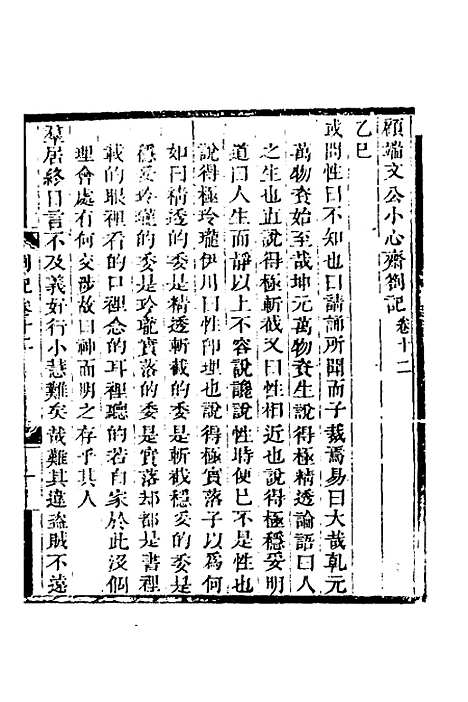 顧端文公小心齋劄記卷十二
乙巳
或問性曰不知也曰請誦所聞而子裁焉易曰大哉乾元
萬物資始至哉坤元萬物資生說得極精透論語曰人
之生也直說得極斬截又曰性相近也說得極穩妥明
道曰人生而靜以上不容說纔說性時便已不是性也
說得極玲瓏伊川曰性即理也說得極實落子以爲何
如曰精透的委是精透斬截的委是斬截穩妥的委是
穩妥玲瓏的委是玲瓏實落的委是實落却都是書裡
載的眼裡看的口裡念的耳裡聽的若自家於此沒個
理會處有何交涉故曰神而明之存乎其人
羣居終日言不及義好行小慧難矣哉難其違盜賊不遠
劄記卷十二